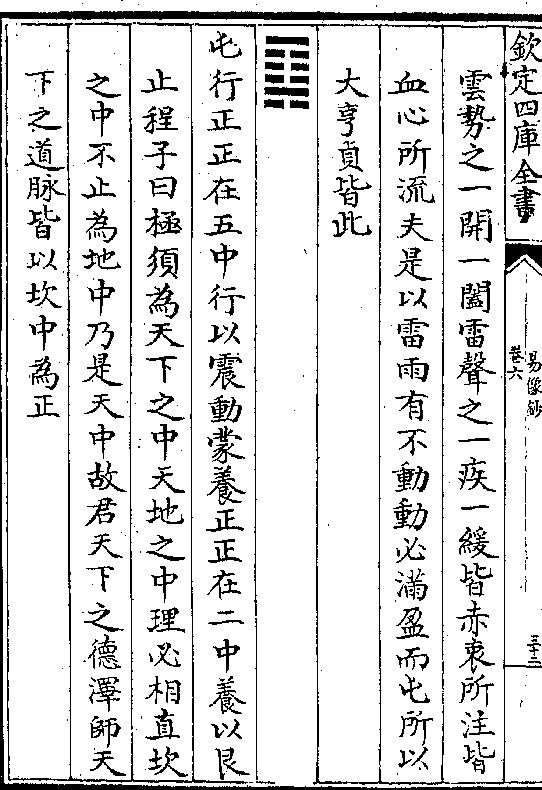 欽定四庫全書
易像鈔
卷六
三十三
雲勢之一開一闔雷聲之一疾一緩皆赤衷所注皆
血心所流夫是以雷雨有不動動必滿盈而屯所以
大亨貞皆此
屯行正正在五中行以震動蒙養正正在二中養以艮
止程子曰極須為天下之中天地之中理必相直坎
之中不止為地中乃是天中故君天下之德澤師天
下之道脉皆以坎中為正